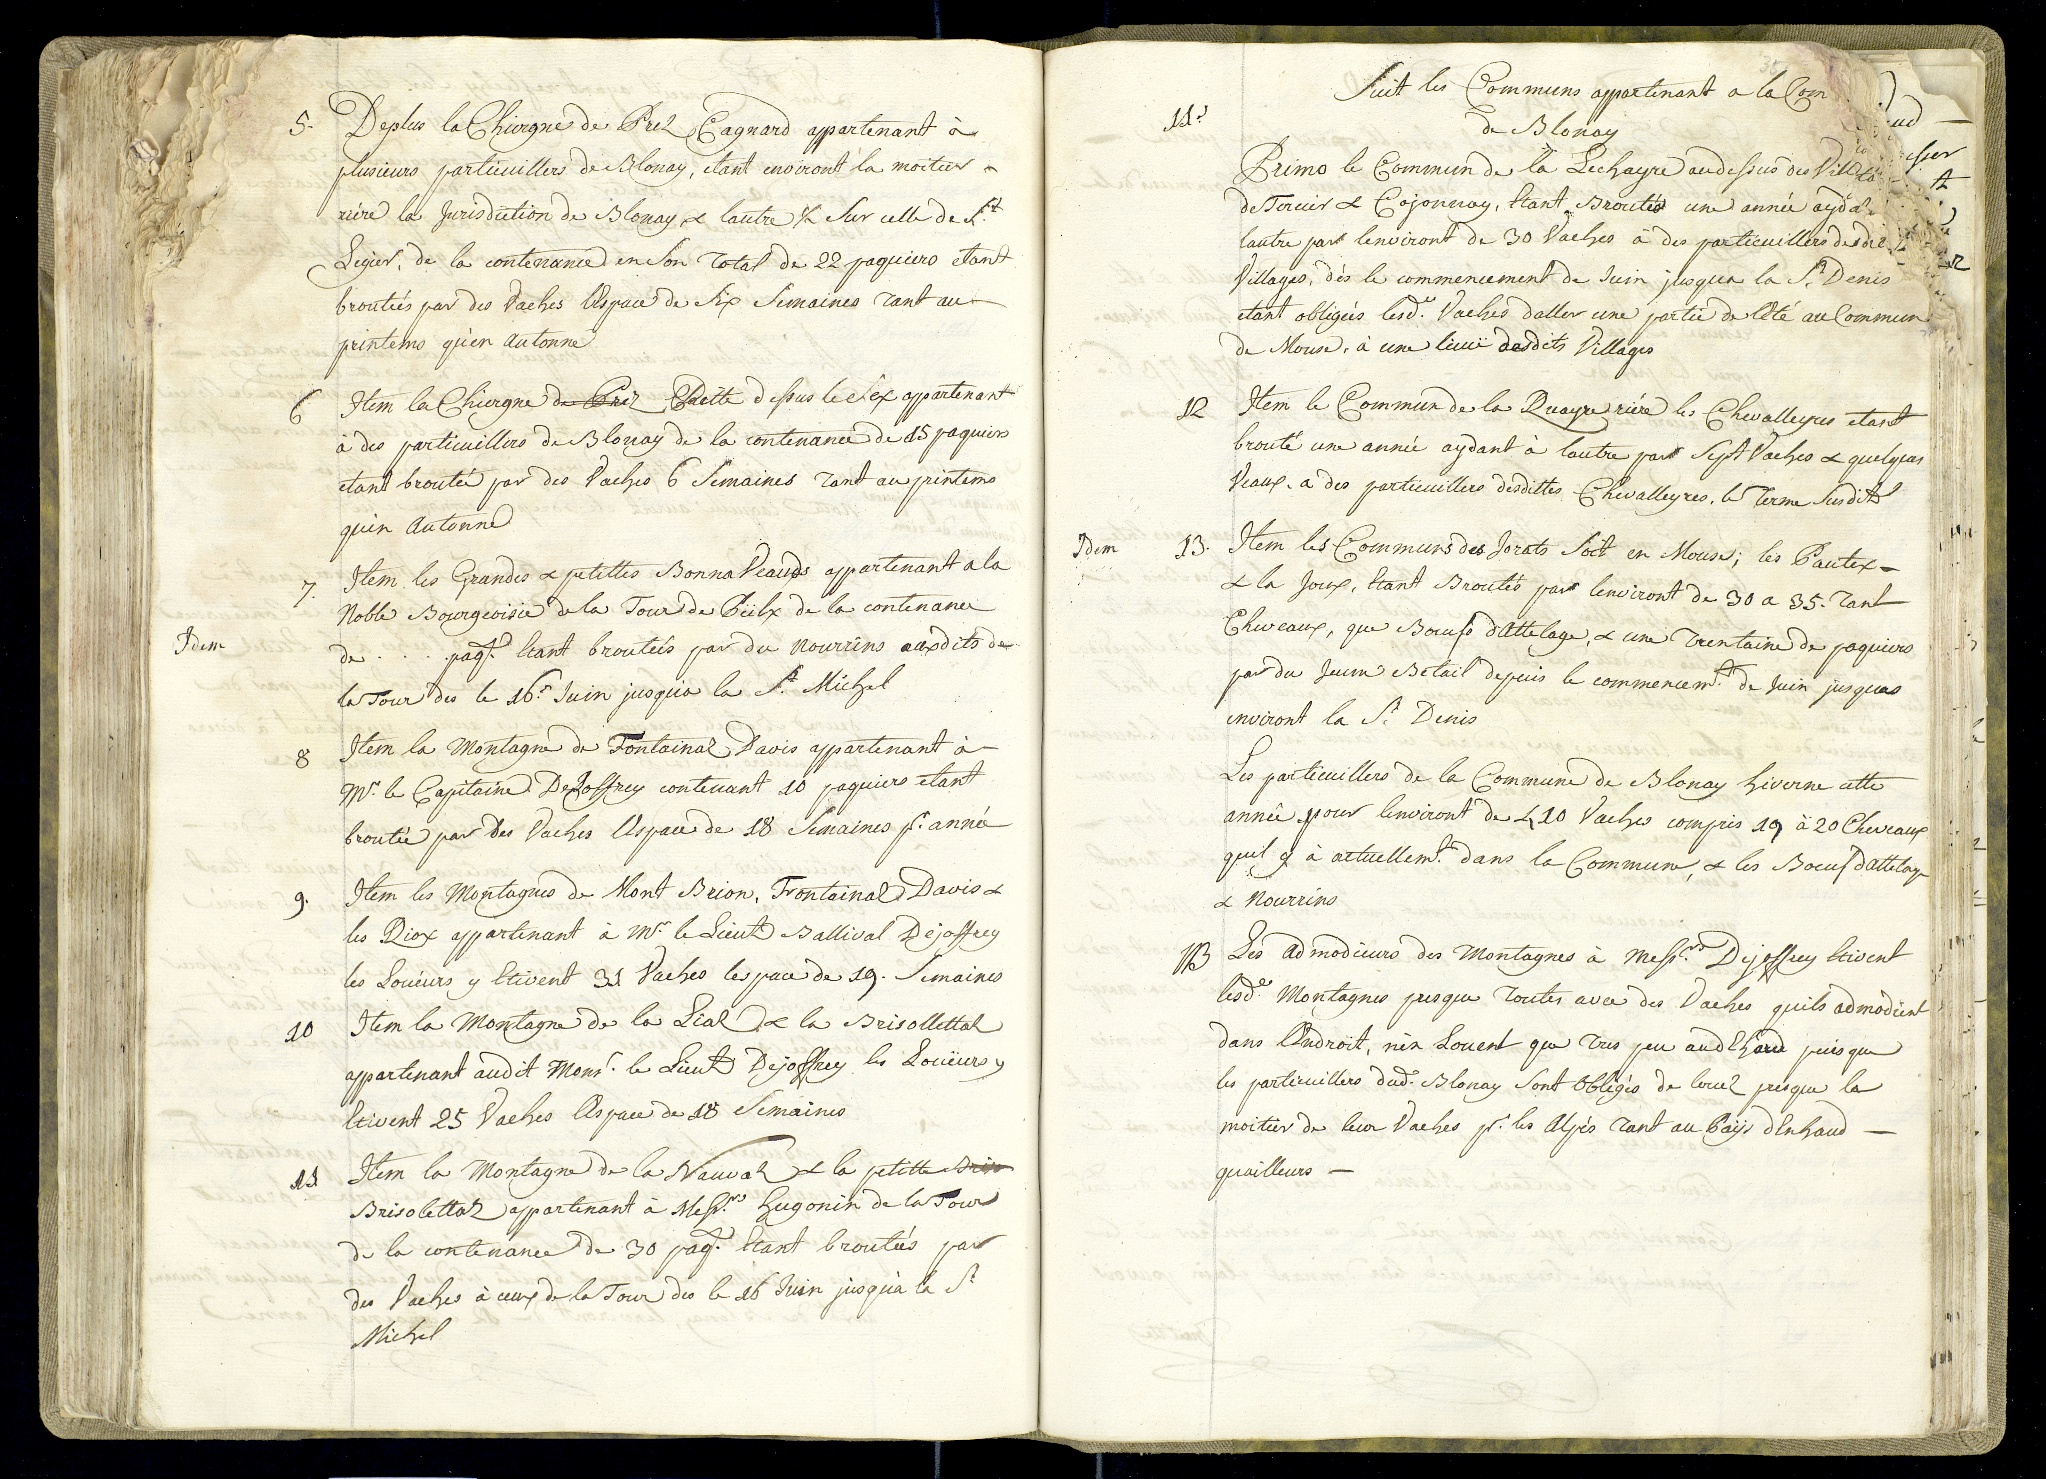 5. Deplus la Chiergne de Prez Cagnard appartenant à
plusieurs particuillers de Blonay, etant environt la moitier
riére la Jurisdiction de Blonay & lautre ½ Sur celle de St
Legier, de la contenance en Son total de 22 paquiers etant
broutés par des Vaches lespace de Six Semaines tant au
printems qu'en Autonne
6 Item la Chiergne de Prez Dessus le Sex appartenant
à des particuillers de Blonay de la contenance de 15 paquiers
etant broutée par des Vaches 6 Semaines tant au printems
qu'en Autonne
7. Item les Grandes & petittes Bonna Veauds appartenant a la
Noble Bourgeoisie de la Tour de Peilx de la contenance
Idem de . . . . paqs. Etant broutées par du nourrins auxdits de
la Tour des le 16e Juin jusqu'a la St. Michel
8 Item la Montagne de Fontainaz Davis appartenant à
Mr. le Capitaine DeJoffrey contenant 10 paquiers etant
broutée par des Vaches lespace de 18 Semaines pr. année
9. Item les Montagnes de Mont Brion, Frontainaz Davis &
les Riox appartenant à Mr. le Lieut Ballival Dejoffrey
les Loueurs y Etivent 31 Vaches lespace de 19. Semaines
10 Item la Montagne de la Liaz & la Brisollettaz
appartenant audit Monsr. le Lieut Dejoffrey les Loueurs y
Etivent 25 Vaches lespace de 18 Semaines
11 Item la Montagne de la Neuvaz & la petitte Bris
Brisolettaz appartenant à Messrs. Hugonin de la Tour
de la contenance de 30 paqs. Etant broutées par
des Vaches à ceux de la Tour des le 16 Juin jusqu'à la St
Michel
Suit les Communs appartenant a la Com
11. de Blonay
Primo le Commun de la Lechayre audessus des Vill
de Tercier & Cojonnay, Etant Broutés une année aydt a
lautre par lenviront de 30 Vaches à des particuillers desd
Villages, dés le commencement de Juin jusqua la St. Denis
etant obligées lesd. Vaches d'aller une partie de l'Eté au Commun
de Mouse, à une lieuë desdits Villages
12 Item le Commun de la Quayre riére les Chevalleyres etant
brouté une année aydant à lautre par Sept Vaches & quelques
Veaux. a des particuillers desdittes Chevalleyres, le terme Susdit
Idem 13. Item les Communs des Jorats Soit en Mouse; les Pautex
& la Joux, Etant Broutés par lenviront de 30 a 35. tant
Chevaux, que Boeufs d'Attelage, & une trentaine de paquiers
par du Jeune Betail depuis le commencemt. de Juin jusques
environt la St. Denis
Les particuillers de la Commune de Blonay hiverne cette
année pour lenviront de 410 Vaches compris 19 à 20 Chevaux
quil y à actuellemt. dans la Commune, & les Boeufs d'attelage
& Nourrins
13 Les Admodieurs des Montagnes à Messrs. Dejoffrey Etivent
lesd. Montagnes presque toutes avec des Vaches quils admodient
dans l'Endroit, n'en Louent que tres peu puisque
les particuillers dud. Blonay Sont obligés de louez presque la
moitier de leur Vaches pr. les Alpes tant au Païs d'Enhaud
qu'ailleurs